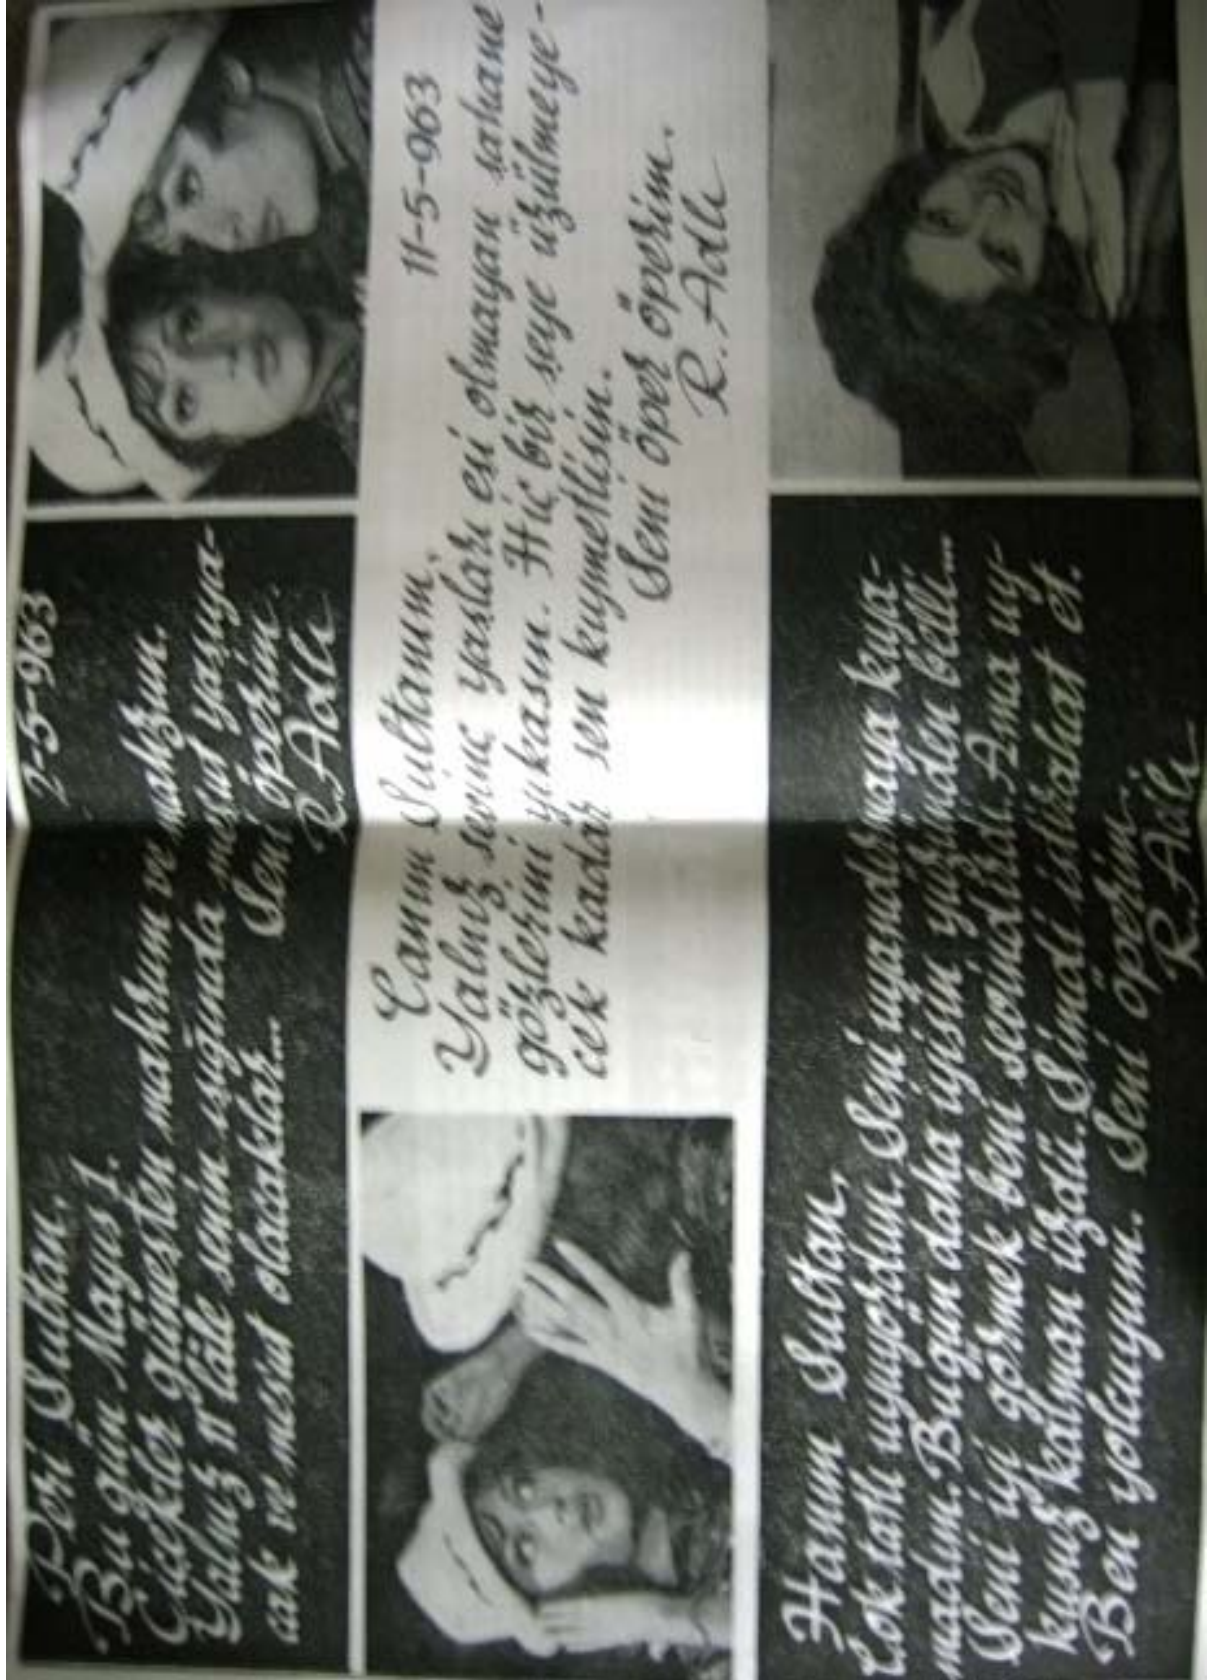 Peri Sultan,
1-5-963
Bu gün Mayıs 1.
Çiçekler güneşten mahrum ve mahzun.
Yalnız lâle senin ışığında mesut yaşıya-
cak ve mesut olacaklar... Seni öperim.
R. Adlı
11-5-963
Canım Sultanım,
Yalnız sevinç yaşları eşi olmayan şahane
gözlerini yıkasın. Hiç bir şeye üzülmeye-
cek kadar sen kıymetlisin.
Seni öper öperim.
R. Adlı
Hanım Sultan,
Çok tatlı uyuyordun. Seni uyandırmaya kıya-
madım. Bugün daha iyisin yüzünden belli...
Seni iyi görmek beni sevindirdi. Ama uy-
kusuz kalman üzdü. Şimdi istirahat et.
Ben yolcuyum. Seni öperim.
R. Adlı